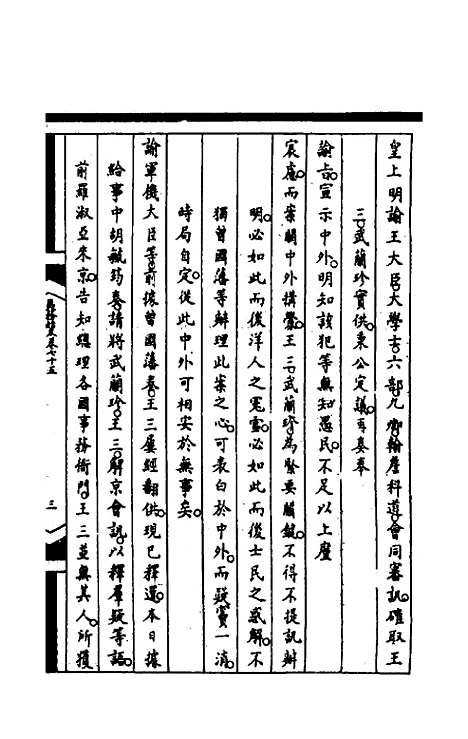 皇上明諭王大臣大學士六部九卿翰詹科道會同審訊確取王
三武蘭珍實供秉公定議再降奉
諭旨宣示中外明知該犯等無知愚民不足以上廑
宸慮而案關中外構釁王三武蘭珍為緊要關鍵不得不提訊辦
明必如此而後洋人之冤雪必如此而後士民之惑解不
獨曾國藩等辦理此案之心可表白於中外而疑竇一消
時局自定從此中外可相安於無事矣
諭軍機大臣等前據曾國藩奏王三屢經翻供現已釋還本日據
給事中胡毓筠奏請將武蘭珍王三解京會訊以釋羣疑等語
前羅淑亞來京告知總理各國事務衙門王三並無其人所獲
卷七十五
三